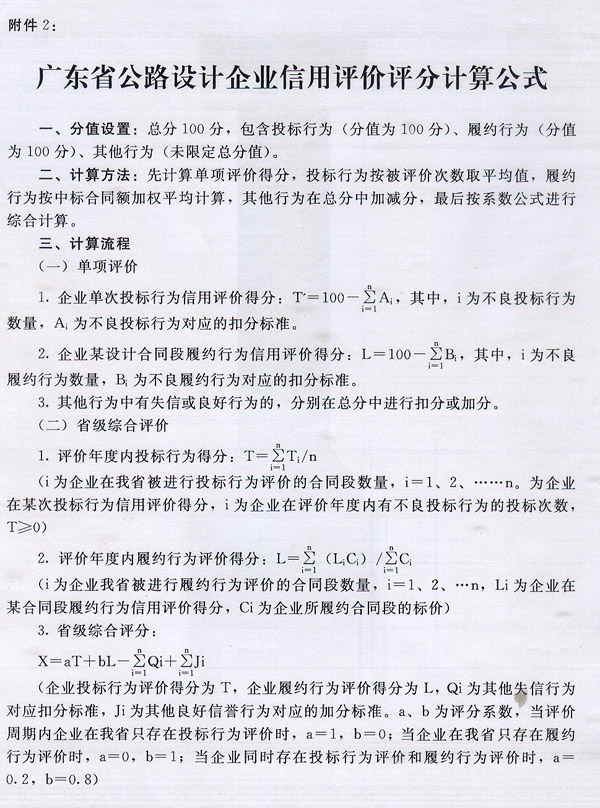 附件 2：
广东省公路设计企业信用评价评分计算公式
一、分值设置：总分 100 分，包含投标行为（分值为 100 分）、履约行为（分值
为 100 分）、其他行为（未限定总分值）。
二、计算方法：先计算单项评价得分，投标行为按被评价次数取平均值，履约
行为按中标合同额加权平均计算，其他行为在总分中加减分，最后按系数公式进行
综合计算。
三、计算流程
（一）单项评价
1. 企业单次投标行为信用评价得分：T′＝100－∑(n, i=1)Aᵢ，其中，i 为不良投标行为
数量，Aᵢ 为不良投标行为对应的扣分标准。
2. 企业某设计合同段履约行为信用评价得分：L＝100－∑(n, i=1)Bᵢ，其中，i 为不良
履约行为数量，Bᵢ 为不良履约行为对应的扣分标准。
3. 其他行为中有失信或良好行为的，分别在总分中进行扣分或加分。
（二）省级综合评价
1. 评价年度内投标行为得分：T＝∑(n, i=1)Tᵢ/n
（i 为企业在我省被进行投标行为评价的合同段数量，i＝1、2、……n。为企业
在某次投标行为信用评价得分，i 为企业在评价年度内有不良投标行为的投标次数，
T≥0）
2. 评价年度内履约行为评价得分：L＝∑(n, i=1)（LᵢCᵢ）/∑(n, i=1)Cᵢ
（i 为企业我省被进行履约行为评价的合同段数量，i＝1、2、…n，Li 为企业在
某合同段履约行为信用评价得分，Ci 为企业所履约合同段的标价）
3. 省级综合评分：
X＝aT＋bL－∑(n, i=1)Qi＋∑(n, i=1)Ji
（企业投标行为评价得分为 T，企业履约行为评价得分为 L，Qi 为其他失信行为
对应扣分标准，Ji 为其他良好信誉行为对应的加分标准。a、b 为评分系数，当评价
周期内企业在我省只存在投标行为评价时，a＝1，b＝0；当企业在我省只存在履约
行为评价时，a＝0，b＝1；当企业同时存在投标行为评价和履约行为评价时，a＝
0.2，b＝0.8）